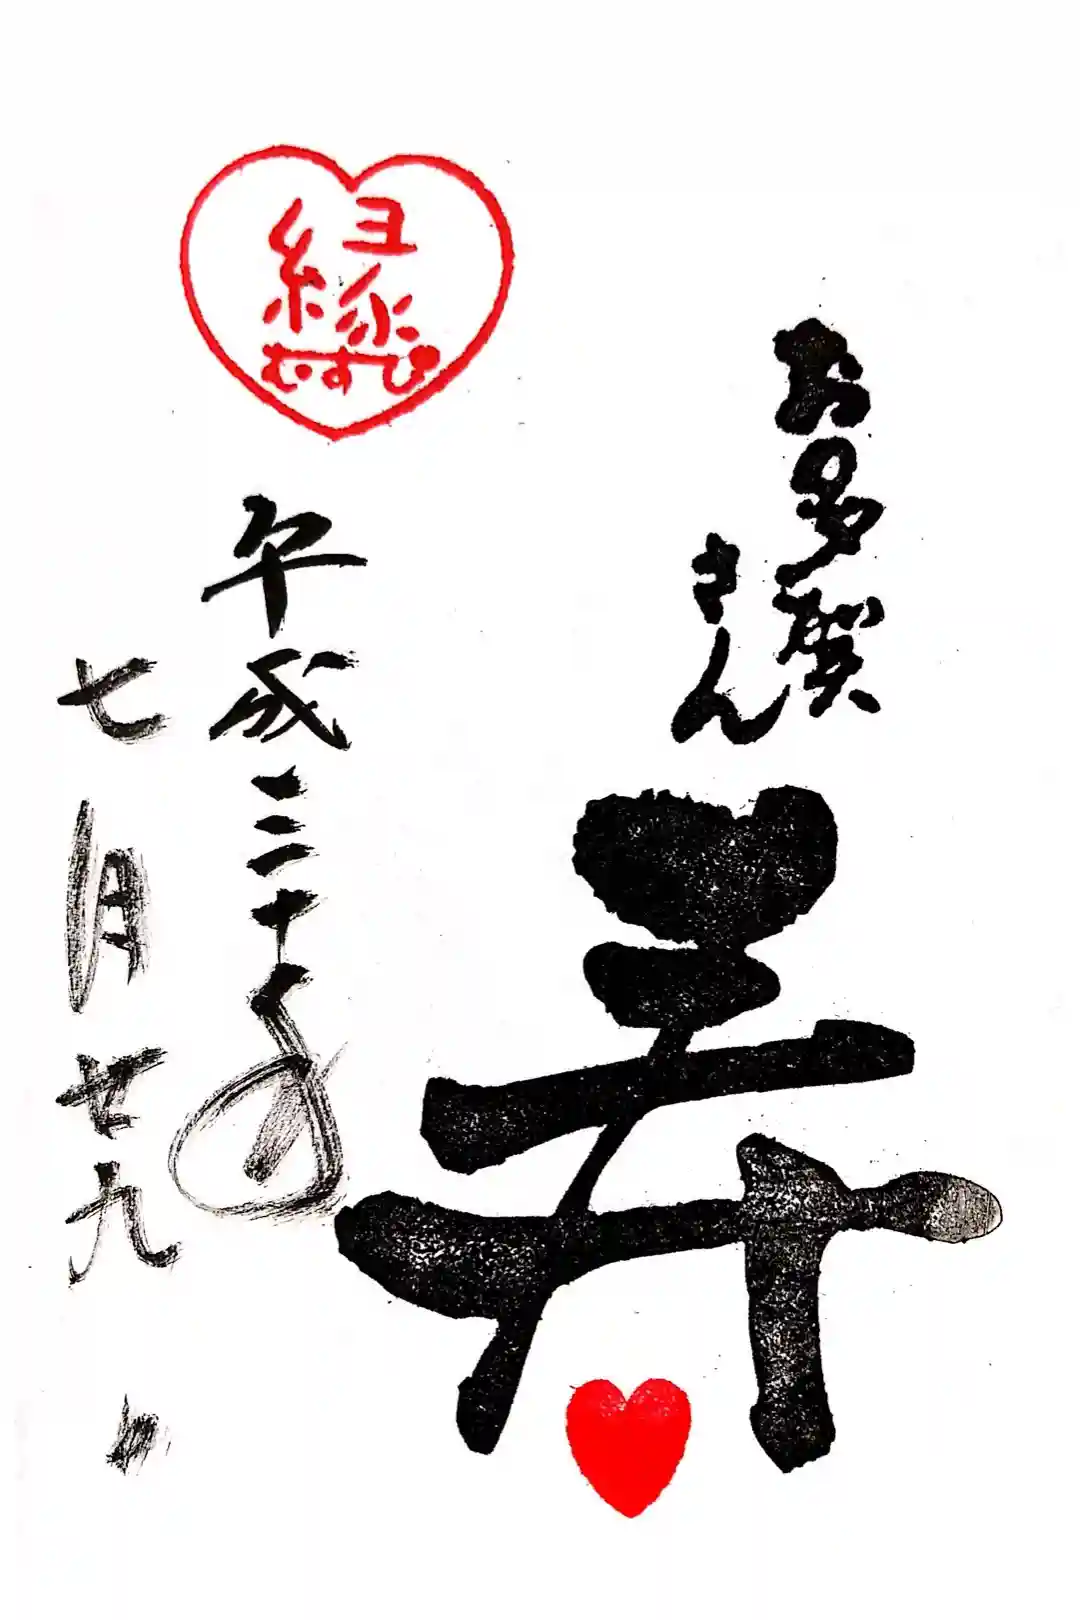 お多賀
さん
寿
縁
むすび
平成三十年
七月廿九日